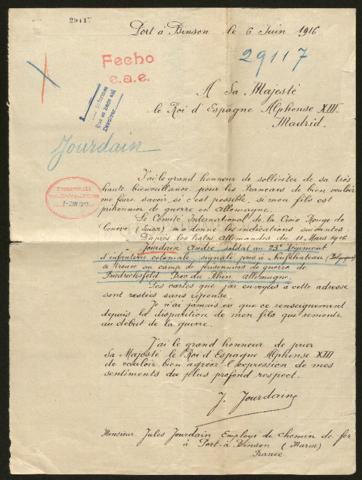 29117
Port à Binson le 6 Juin 1916
Fecho
c.a.e.
29117
A Sa Majesté
le Roi d'Espagne Alphonse XIII.
Madrid.
Jourdain
J'ai le grand honneur de solliciter de sa très
haute bienveillance pour les Français de bien vouloir
me faire savoir si c'est possible, si mon fils est
prisonnier de guerre en Allemagne.
Le Comité International de la Croix Rouge de
Genève (Suisse) m'a donné les indications suivantes
D'après les listes Allemandes du 11 Mars 1916
Jourdain André soldat au 23e Régiment
d'infanterie coloniale, signalé pris à Neufchateau (Belgique)
au camp de prisonniers de guerre de
Friedrichsfeld Allemagne.
Les cartes que j'ai envoyées à cette adresse
sont restées sans réponse.
Je n'ai jamais eu que ce renseignement
depuis la disparition de mon fils qui remonte
au début de la guerre.
J'ai le grand honneur de prier
sa Majesté le Roi d'Espagne Alphonse XIII
de vouloir bien agréer l'expression de mes
sentiments du plus profond respect.
J. Jourdain
Monsieur Jules Jourdain Employé de chemin de fer
à Port-à Binson (Marne)
France